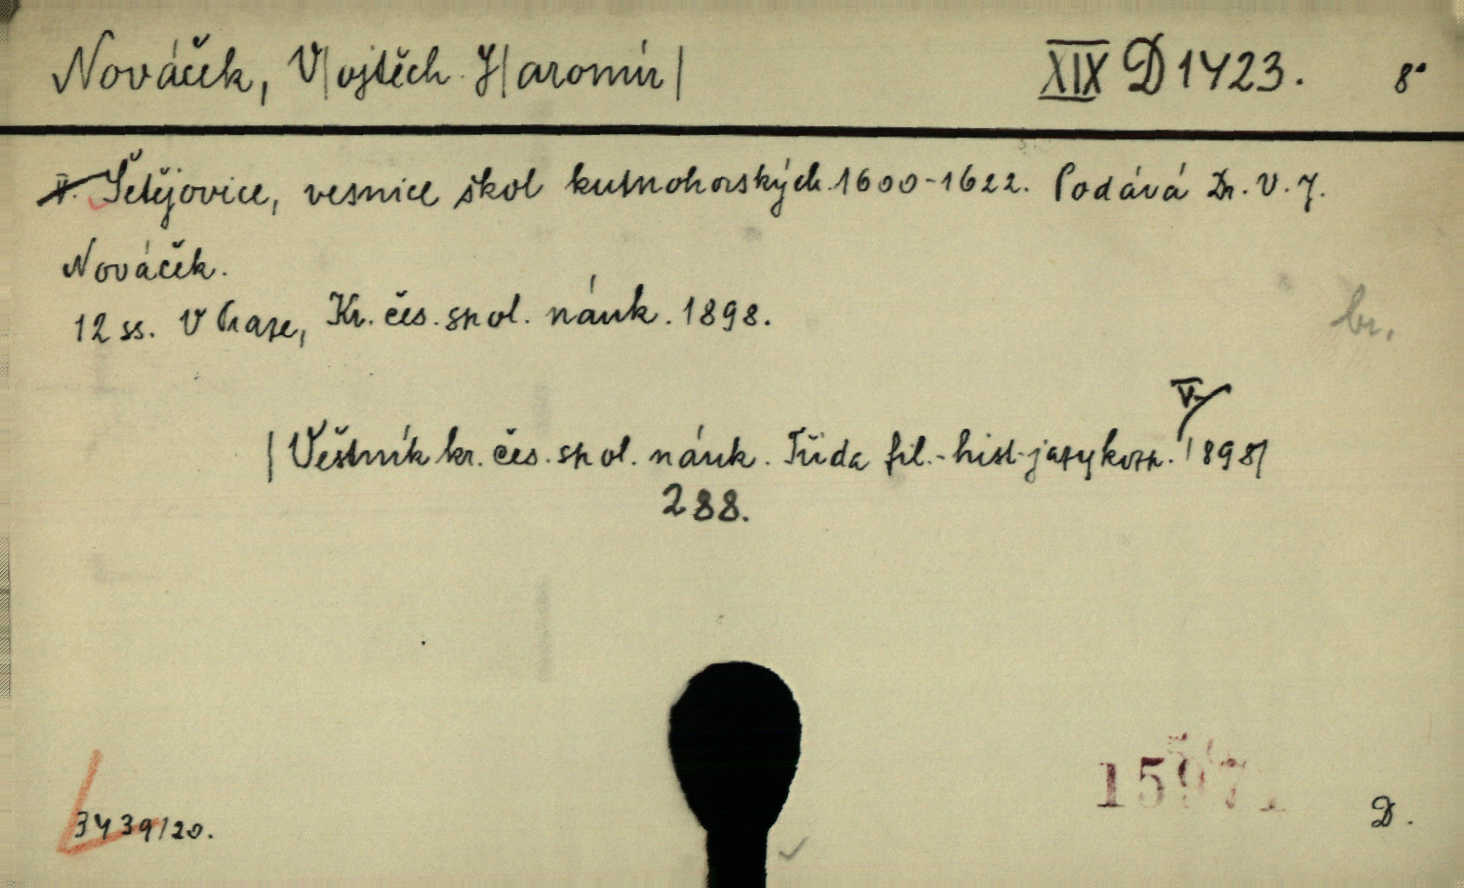 Nováček, V|ojtěch J|aromír| XIX D 1423. 8°
V. Štějovice, vesnice škol kutnohorských. 1600-1622. Podává Dr. V. J.
Nováček.
12 ss. V Praze, Kr. čes. spol. náuk. 1898.
br.
V.
|Věstník kr. čes. spol. náuk. Třída fil.-hist-jazykozp. 1898|
288.
15971
3439/20. D.